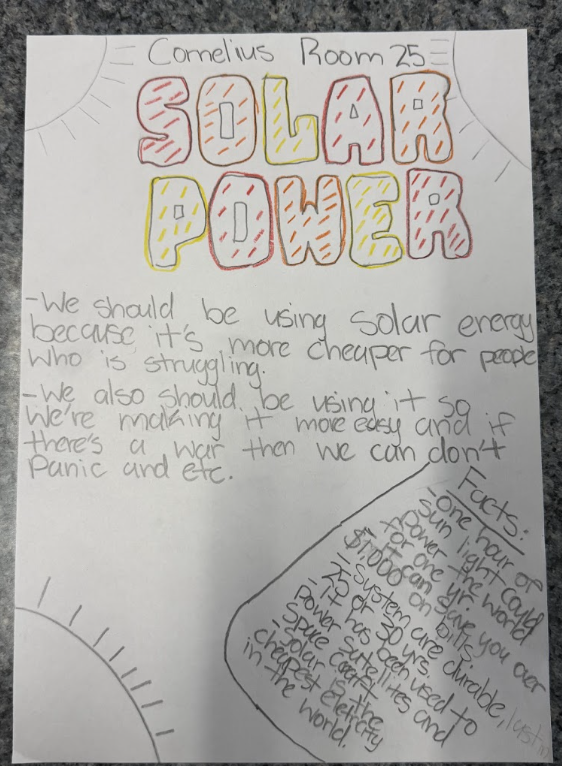 Cornelius Room 25
SOLAR
POWER
-We should be using solar energy
because it's more cheaper for people
who is struggling.
-We also should be using it so
We're making it more easy and if
there's a war then we can don't
Panic and etc.
Facts:
-One hour of
sun light could
power the world
for one yr.
-It can save you over
$1,000 on bills
-System are durable, lasting
25 or 30 yrs.
-it has been used to
power satellites and
space craft
-Solar is the
cheapest eleticity
in the world.